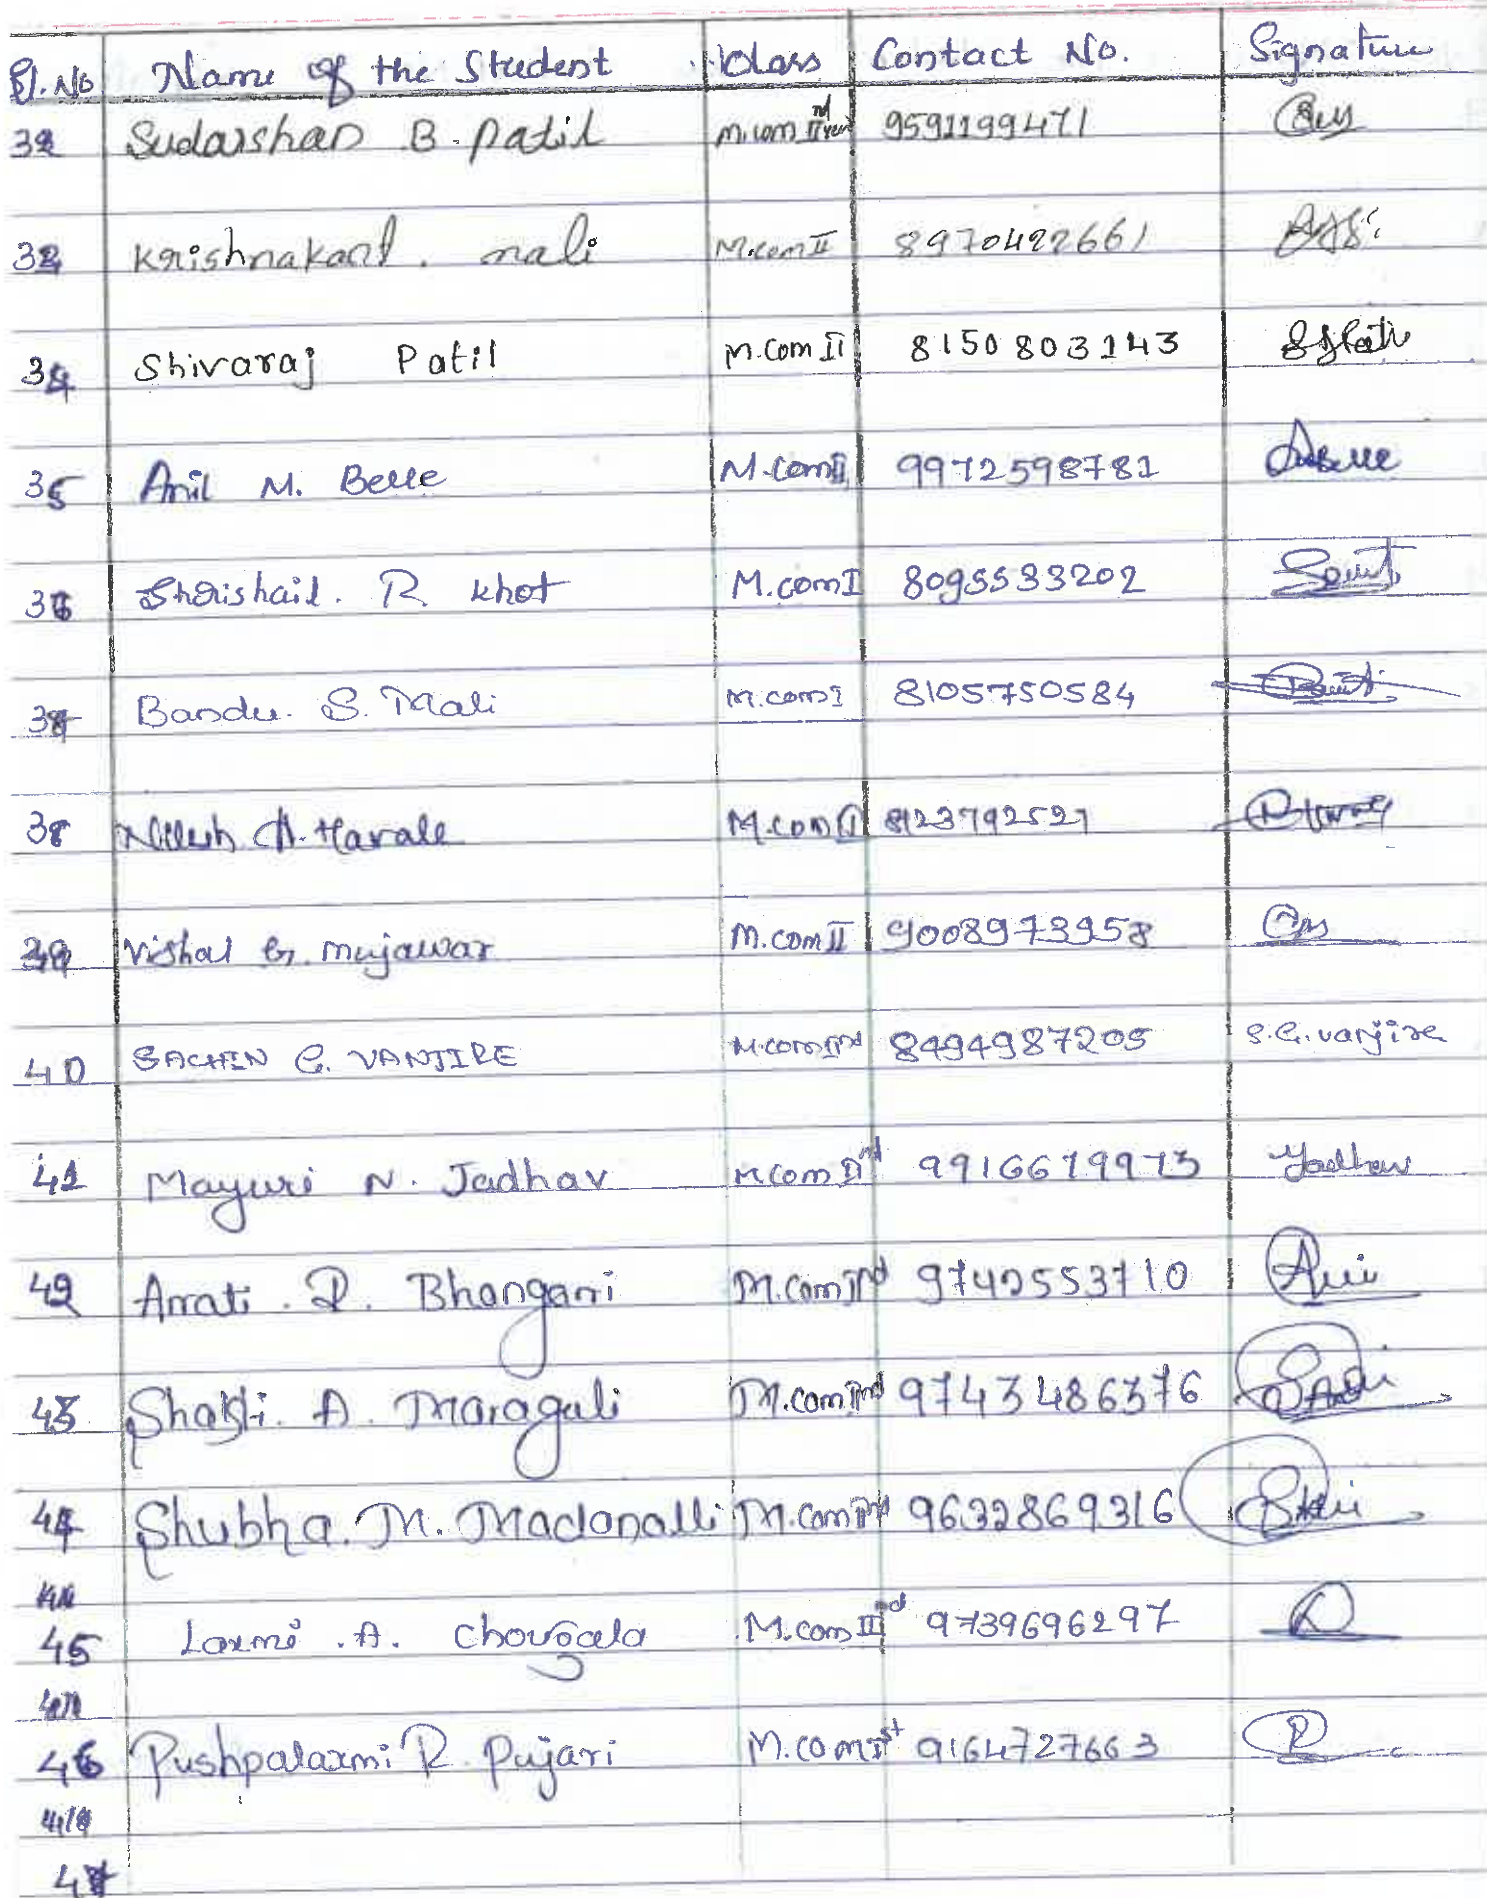 Sl.No Name of the Student Class Contact No. Signature
32 Sudarshan B. Patil M.com IInd year 9591199471
33 Krishnakant. mali M.com II 8970422661
34 Shivaraj Patil M.com II 81508 03143
35 Anil M. Belle M.com II 9972598781
36 Shrishail. R. khot M.com I 8095533202
37 Bandu. S. Mali M.com I 8105750584
38 Nilesh A. Harale M.com II 8123792521
39 Vishal G. mujawar M.com II 9008973958
40 SACHIN G. VANJIRE M.com IInd 8494987205 S.G.vanjire
41 Mayuri N. Jadhav M.com IInd 9916679973 Jadhav
42 Arrati. D. Bhangari M.com IInd 9742553710
43 Shakti. A. Maragali M.com IInd 9743486376
44 Shubha. M. Madanalli M.com IInd 9632869316
45 Laxmi .A. Chougala M.com IInd 9739696297
46 Pushpalaxmi R. Pujari M.com Ist 9164727663 P
47